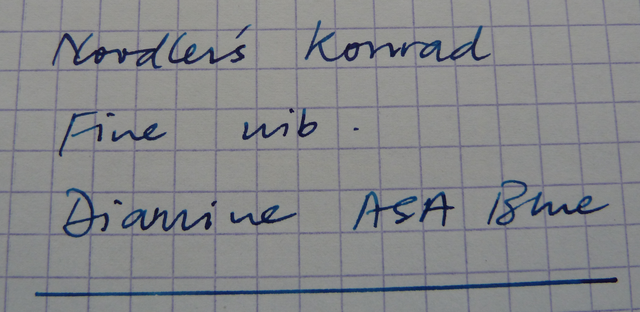 Noodler's Konrad
Fine nib.
Diamine ASA Blue